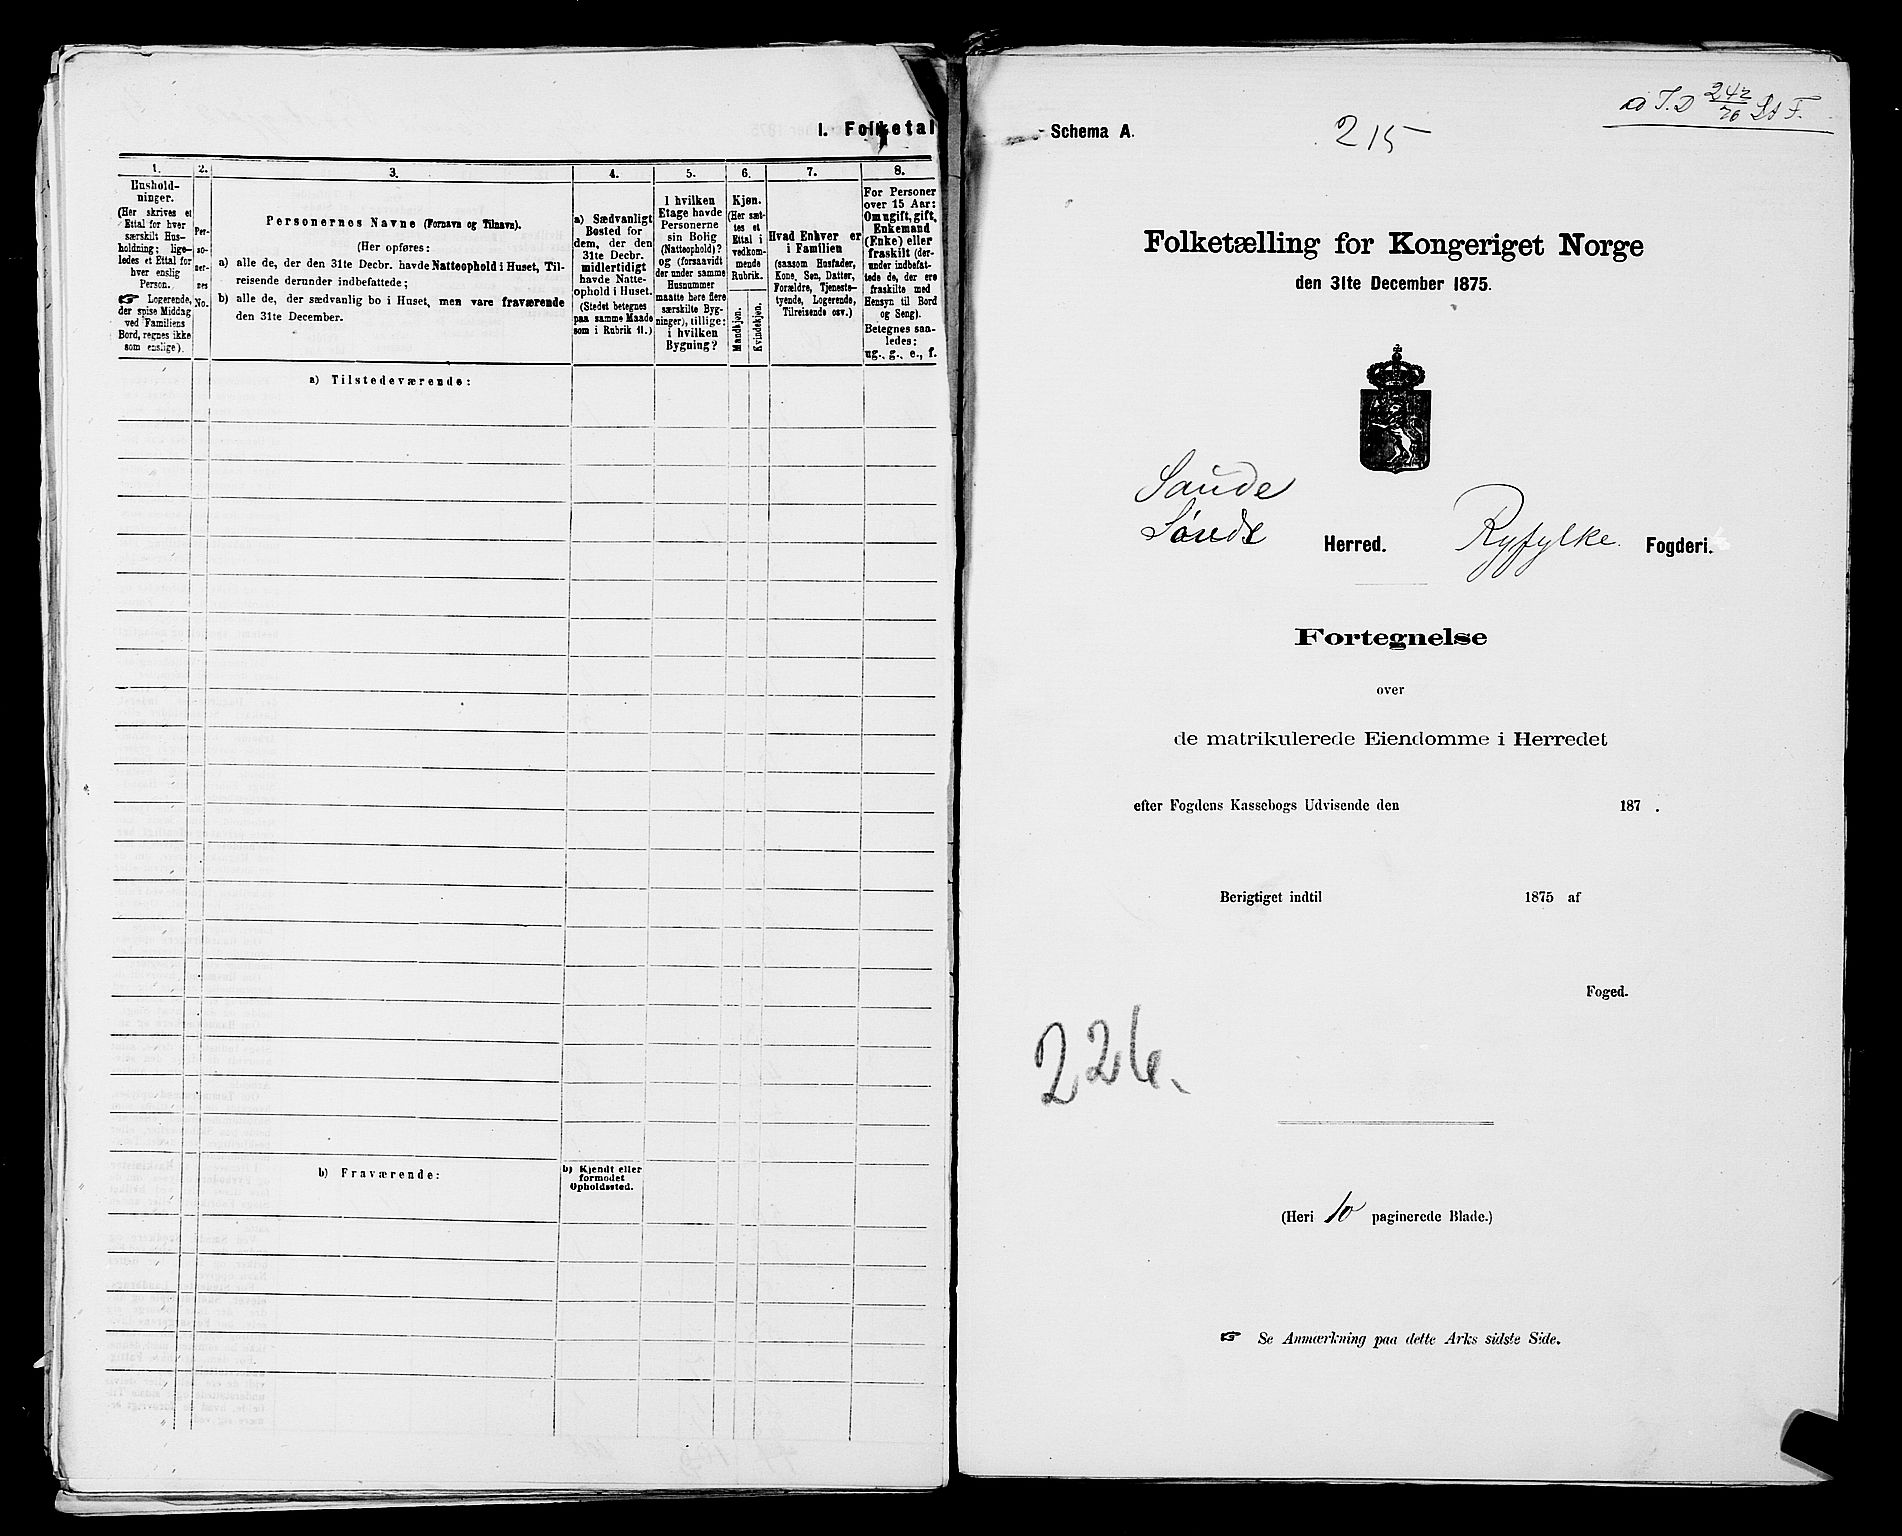 I. Folketal
1.
Husholdninger.
(Her skrives et
Ettal for hver
særskilt Hus-
holdning; lige-
ledes et Ettal for
hver enslig
Person.
☞ Logerende,
der spise Middag
ved Familiens
Bord, regnes ikke
som enslige).
2.
Per-
so-
ner-
nes
No.
3.
Personernes Navne (Fornavn og Tilnavn).
(Her opføres:
a) alle de, der den 31te Decbr. havde Natteophold i Huset, Til-
reisende derunder indbefattede;
b) alle de, der sædvanlig bo i Huset, men vare fraværende
den 31te December.
4.
a) Sædvanligt
Bosted for
dem, der den
31te Decbr.
midlertidigt
havde Natte-
ophold i Huset.
(Stedet betegnes
paa samme Maade
som i Rubrik 11.)
5.
I hvilken
Etage havde
Personerne
sin Bolig
(Natteophold)?
og (forsaavidt
der under samme
Husnummer
maatte høre flere
særskilte Byg-
ninger), tillige:
i hvilken
Bygning?
6.
Kjøn.
(Her sæt-
tes et
Ettal i
vedkom-
mende
Rubrik.
Mandkjøn.
Kvindekjøn.
7.
Hvad Enhver er
i Familien
(saasom Husfader,
Kone, Søn, Datter,
Forældre, Tjeneste-
tyende, Logerende,
Tilreisende osv.)
8.
For Personer
over 15 Aar:
Om ugift, gift,
Enkemand
(Enke) eller
fraskilt (der-
under indbefat-
tede de, der ere
fraskilte med
Hensyn til Bord
og Seng).
Betegnes saa-
ledes:
ug., g., e., f.
a) Tilstedeværende:
b) Fraværende:
b) Kjendt eller
formodet
Opholdssted.
Schema A.
215
242
76
Folketælling for Kongeriget Norge
den 31te December 1875.
Saude
Herred. Ryfylke Fogderi.
Fortegnelse
over
de matrikulerede Eiendomme i Herredet
efter Fogdens Kassebogs Udvisende den 187 .
Berigtiget indtil 1875 af
Foged.
226.
(Heri 10 paginerede Blade.)
☞ Se Anmærkning paa dette Arks sidste Side.